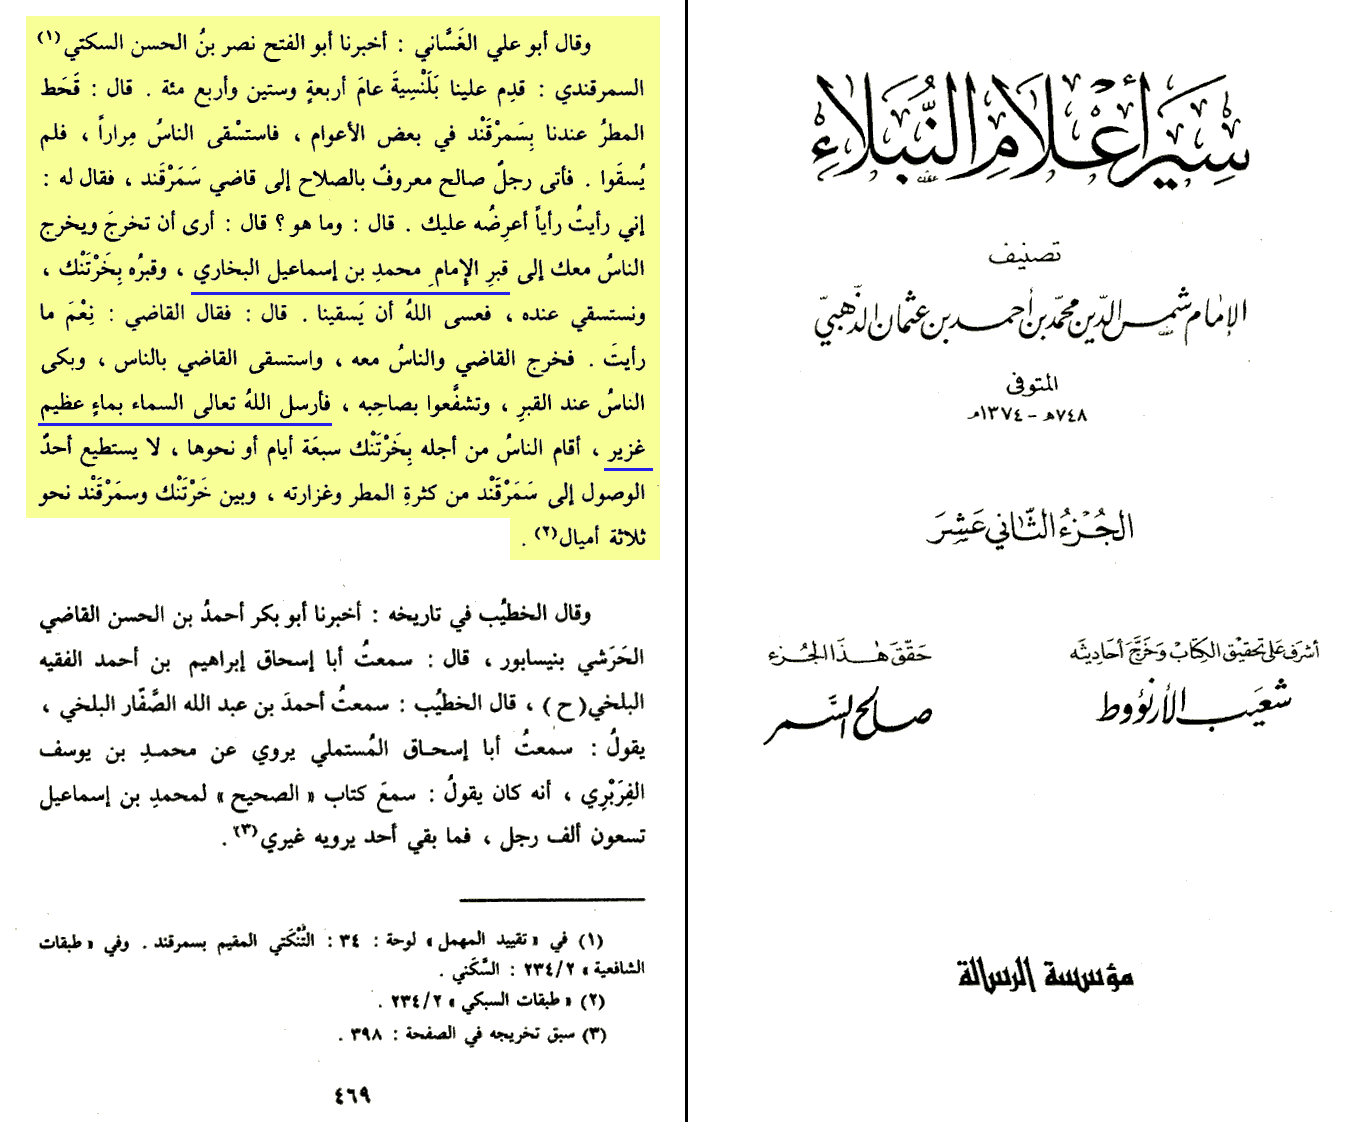 سير أعلام النبلاء
تصنيف
الإمام شمس الدين محمد بن أحمد بن عثمان الذهبي
المتوفى
٧٤٨هـ - ١٣٧٤م
الجزء الثاني عشر
أشرف على تحقيق الكتاب وخرج أحاديثه
شعيب الأرنؤوط
حقق هذا الجزء
صالح السمر
مؤسسة الرسالة
وقال أبو علي الغَسَّاني : أخبرنا أبو الفتح نصر بنُ الحسن السكتي(١)
السمرقندي : قدِم علينا بَلَنْسِيةَ عامَ أربعةٍ وستين وأربع مئة . قال : قَحَط
المطرُ عندنا بِسَمرْقَنْد في بعض الأعوام ، فاستسْقى الناسُ مِراراً ، فلم
يُسقَوا . فأتى رجلٌ صالح معروفٌ بالصلاح إلى قاضي سَمَرْقَند ، فقال له :
إني رأيتُ رأياً أعرِضُه عليك . قال : وما هو ؟ قال : أرى أن تخرجَ ويخرج
الناسُ معك إلى قبرِ الإِمامِ محمدِ بن إسماعيل البخاري ، وقبرُه بِخَرْتَنْك ،
ونستسقي عنده ، فعسى اللهُ أن يَسقينا . قال : فقال القاضي : نِعْمَ ما
رأيتَ . فخرج القاضي والناسُ معه ، واستسقى القاضي بالناس ، وبكى
الناسُ عند القبرِ ، وتشفَّعوا بصاحِبه ، فأرسل اللهُ تعالى السماء بماءٍ عظيم
غزير ، أقام الناسُ من أجله بِخَرْتَنْك سبعَة أيام أو نحوها ، لا يستطيع أحدٌ
الوصول إلى سَمَرْقَنْد من كثرةِ المطر وغزارته ، وبين خَرْتَنْك وسمَرْقَنْد نحو
ثلاثة أميال(٢) .
وقال الخطيُب في تاريخه : أخبرنا أبو بكر أحمدُ بن الحسن القاضي
الحَرَشي بنيسابور ، قال : سمعتُ أبا إسحاق إبراهيم بن أحمد الفقيه
البلخي(ح) ، قال الخطيُب : سمعتُ أحمدَ بن عبد الله الصَّفّار البلخي ،
يقولُ : سمعتُ أبا إسحـاق المُستملي يروي عن محمـدِ بن يوسف
الفِرَبْرِي ، أنه كان يقولُ : سمعَ كتاب « الصحيح » لمحمدِ بن إسماعيل
تسعون ألف رجل ، فما بقي أحد يرويه غيري(٣) .
(١) في « تقييد المهمل » لوحة : ٣٤ : التُنْكَتي المقيم بسمرقند . وفي « طبقات
الشافعية » ٢٣٤/٢ : السَّكَني .
(٢) « طبقات السبكي » ٢٣٤/٢ .
(٣) سبق تخريجه في الصفحة : ٣٩٨ .
٤٦٩